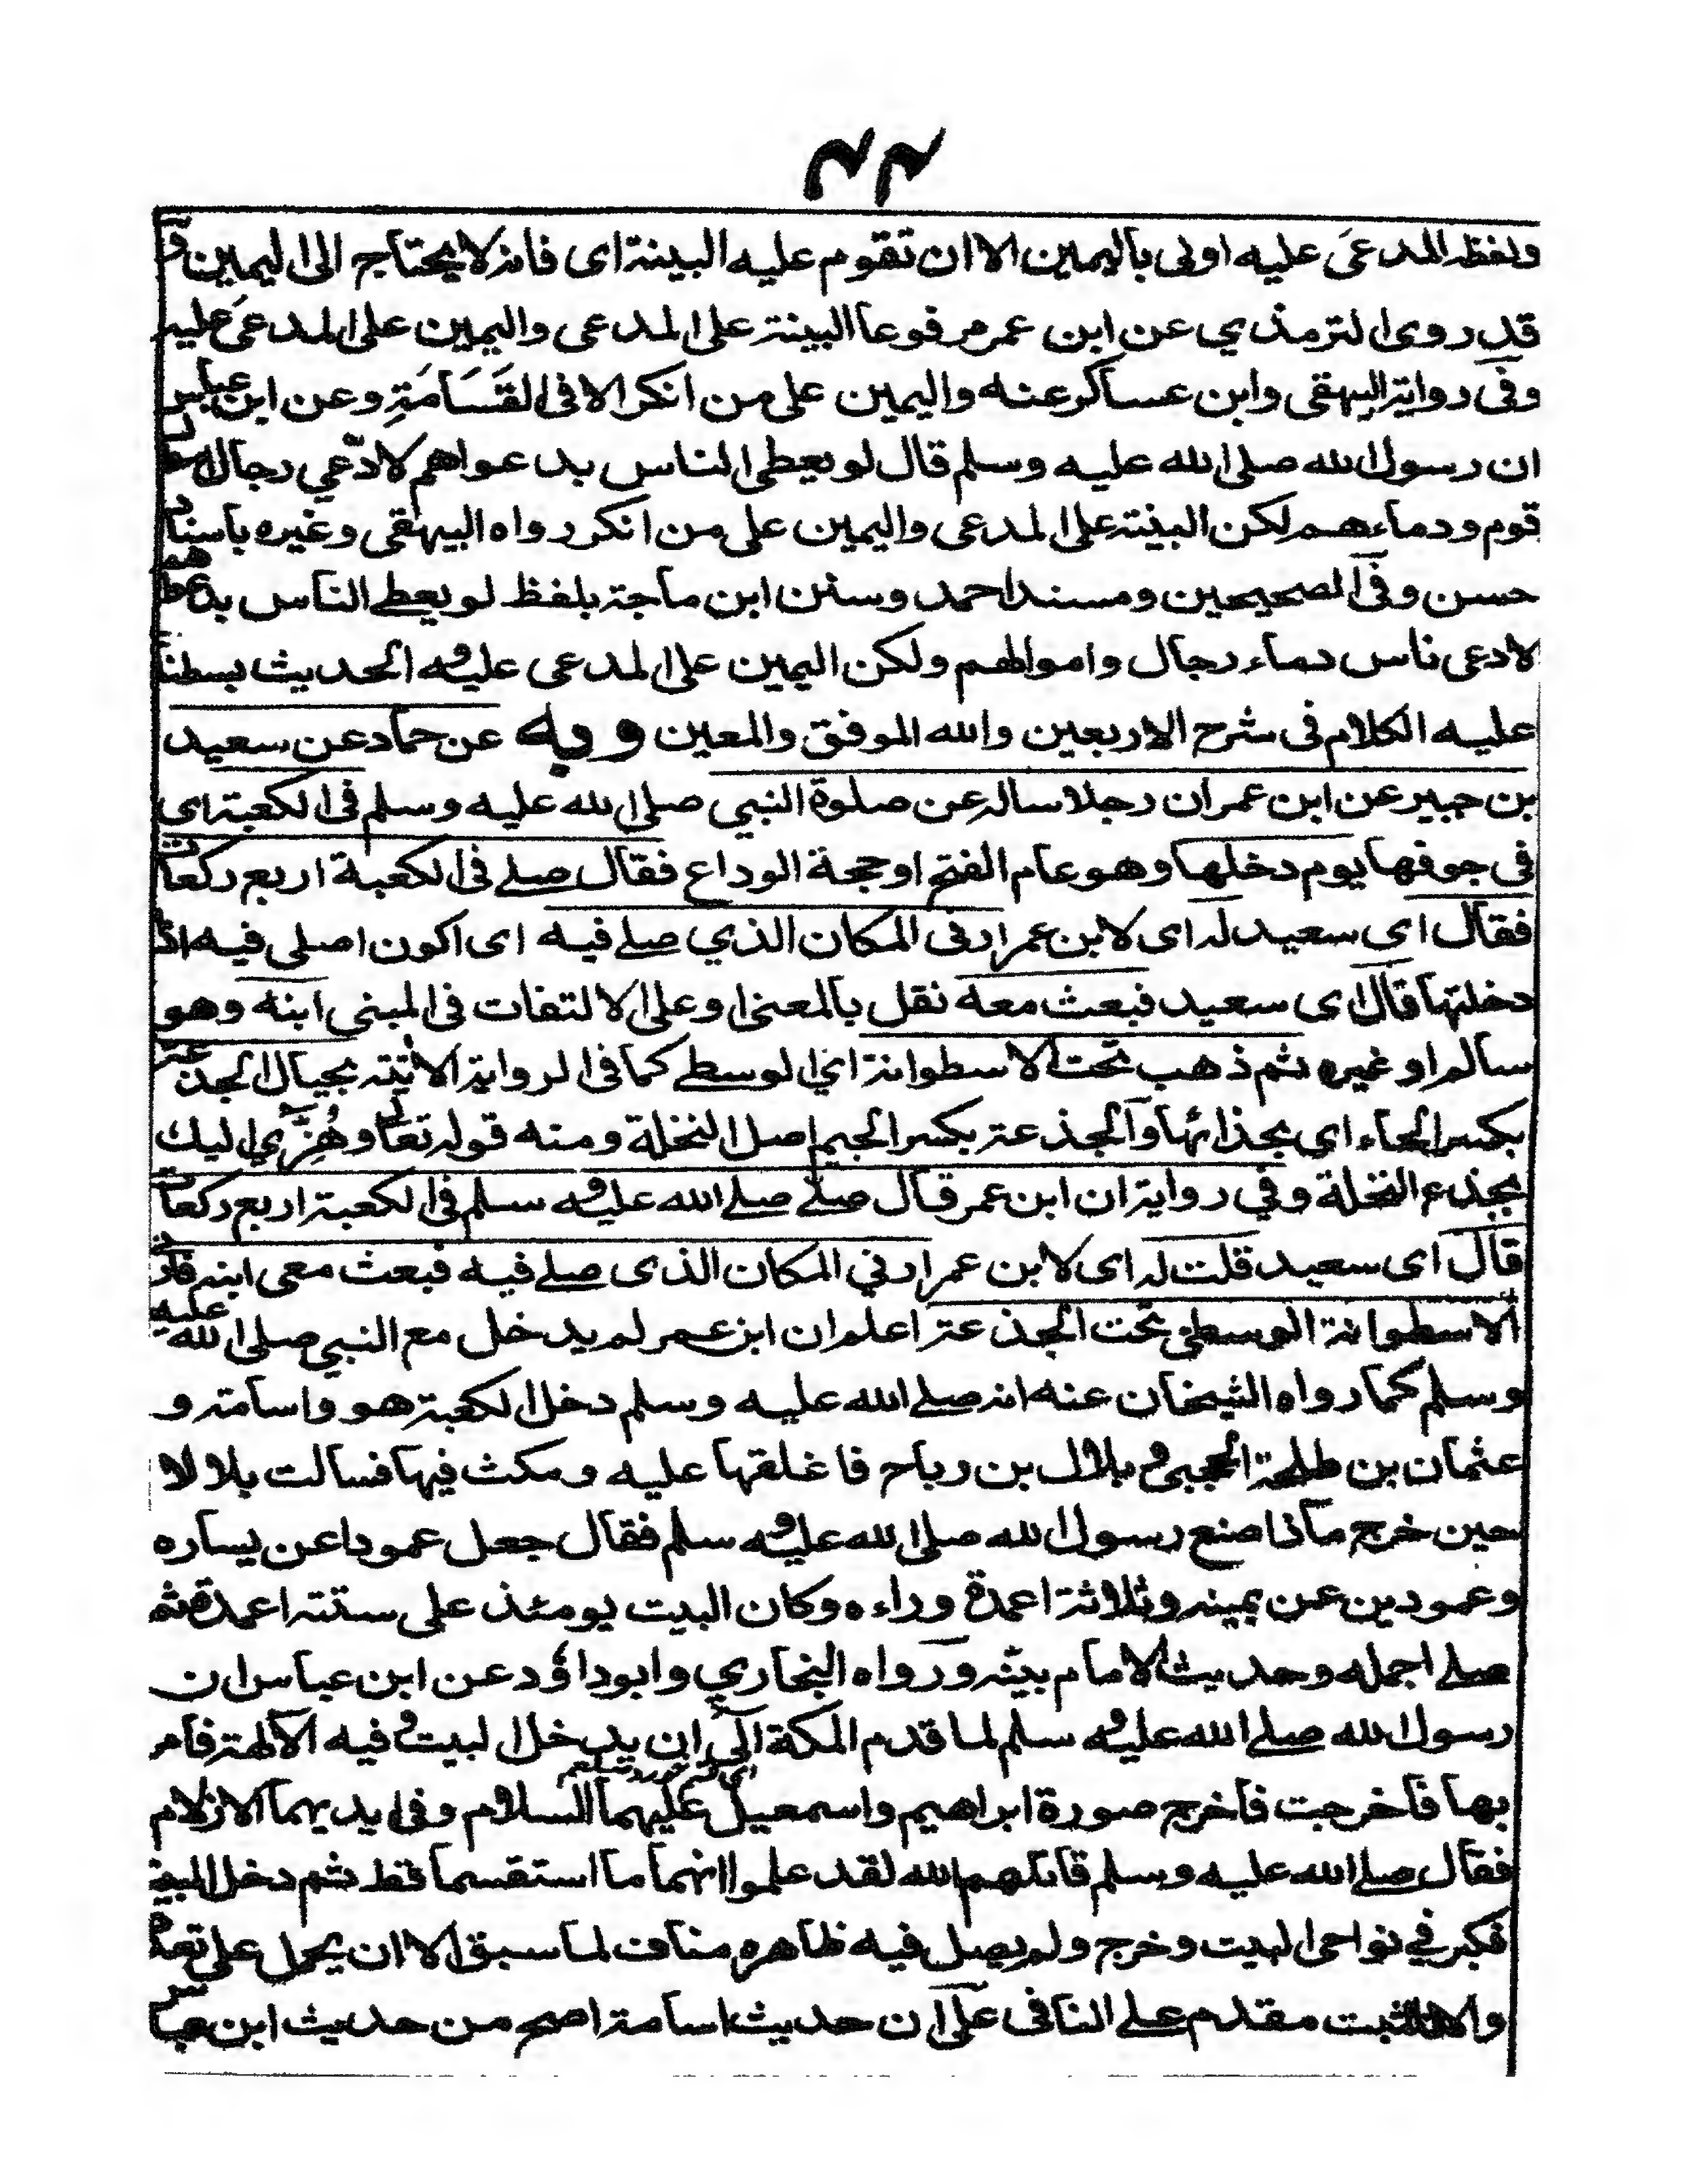 ٤٤
ولفظه المدعَى عليه اولى باليمين الا ان تقوم عليه البينة اى فانه لا يحتاج الى اليمين و
قد روى الترمذي عن ابن عمر مرفوعا البينة على المدعى واليمين على المدعَى عليه
وفى رواية البيهقى وابن عساكر عنه واليمين على من انكر الا فى القَسَامَةِ وعن ابن عباس
ان رسول الله صلى الله عليه وسلم قال لو يعطى الناس بدعواهم لادّعي رجال اموال
قوم ودماءهم لكن البينة على المدعى واليمين على من انكر رواه البيهقى وغيره باسناد
حسن وفى الصحيحين ومسند احمد وسنن ابن ماجة بلفظ لو يعطے الناس بدعواهم
لادعى ناس دماء رجال واموالهم ولكن اليمين على المدعى عليه الحديث بسطنا
عليه الكلام فى شرح الاربعين والله الموفق والمعين وبه عن حماد عن سعيد
بن جبير عن ابن عمر ان رجلا ساله عن صلوة النبي صلى الله عليه وسلم فى الكعبة اى
فى جوفها يوم دخلها وهو عام الفتح او حجة الوداع فقال صلے فى الكعبة اربع ركعات
فقال اى سعيد له اى لابن عمر ارنى المكان الذي صلے فيه اى اكون اصلى فيه اذا
دخلتها قال اى سعيد فبعث معه نقل بالمعنى او على الالتفات فى المبنى ابنه وهو
سالم او غيره ثم ذهب تحت الاسطوانة اي الوسطے كما فى الرواية الاتية بحيال الجذعة
بكسر الحاء اى بحذائها والجذعة بكسر الجيم اصل النخلة ومنه قوله تعالى وهُزِّي اليك
بجذع النخلة وفي رواية ان ابن عمر قال صلے صلے الله عليه وسلم فى الكعبة اربع ركعات
قال اى سعيد قلت له اى لابن عمر ارني المكان الذى صلے فيه فبعث معى ابنه فاتى
الاسطوانة الوسطى تحت الجذعة اعلم ان ابن عمر لم يدخل مع النبي صلى الله عليه
وسلم كما رواه الشيخان عنه انه صلے الله عليه وسلم دخل الكعبة هو واسامة و
عثمان بن طلحة الحجبى وبلال بن رباح فاغلقها عليه ومكث فيها فسالت بلالا
حين خرج ماذا صنع رسول الله صلى الله عليه وسلم فقال جعل عمودا عن يساره
وعمودين عن يمينه وثلاثة اعمدة وراءه وكان البيت يومئذ على ستة اعمدة ثم
صلے اجمله وحديث الامام بيّنه ورواه البخاري وابوداؤد عن ابن عباس ان
رسول الله صلے الله عليه وسلم لما قدم المكة ابى ان يدخل البيت وفيه الآلهة فامر
بها فاخرجت فاخرج صورة ابراهيم واسمعيل عليهما السلام وفى ايديهما الازلام
فقال صلے الله عليه وسلم قاتلهم الله لقد علموا انهما ما استقسما قط ثم دخل البيت
فكبر في نواحى البيت وخرج ولم يصل فيه ظاهره مناف لما سبق الا ان يحمل على تعدده
والا فالمثبت مقدم علے النافى على ان حديث اسامة اصح من حديث ابن عباس